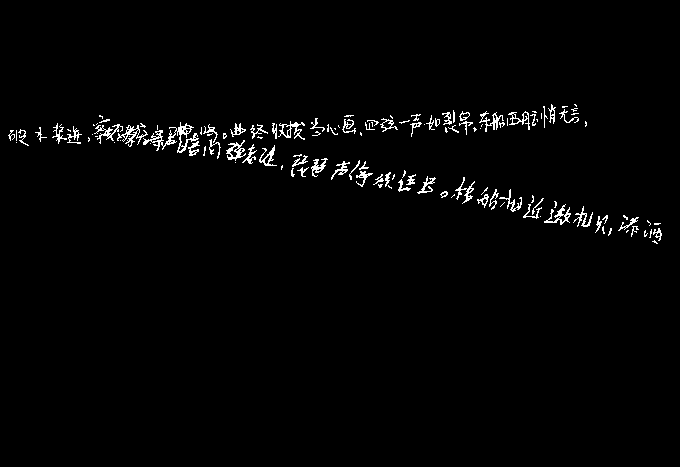 破水浆迸,鸣。曲终收拨当心画,四弦一声如裂帛,东船西舫悄无言,
寻声暗问弹者谁,琵琶声停欲语迟。移船相近邀相见,添酒